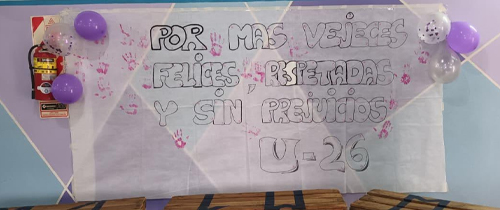 POR MAS VEJECES
FELICES, RESPETADAS
Y SIN PREJUICIOS
U-26